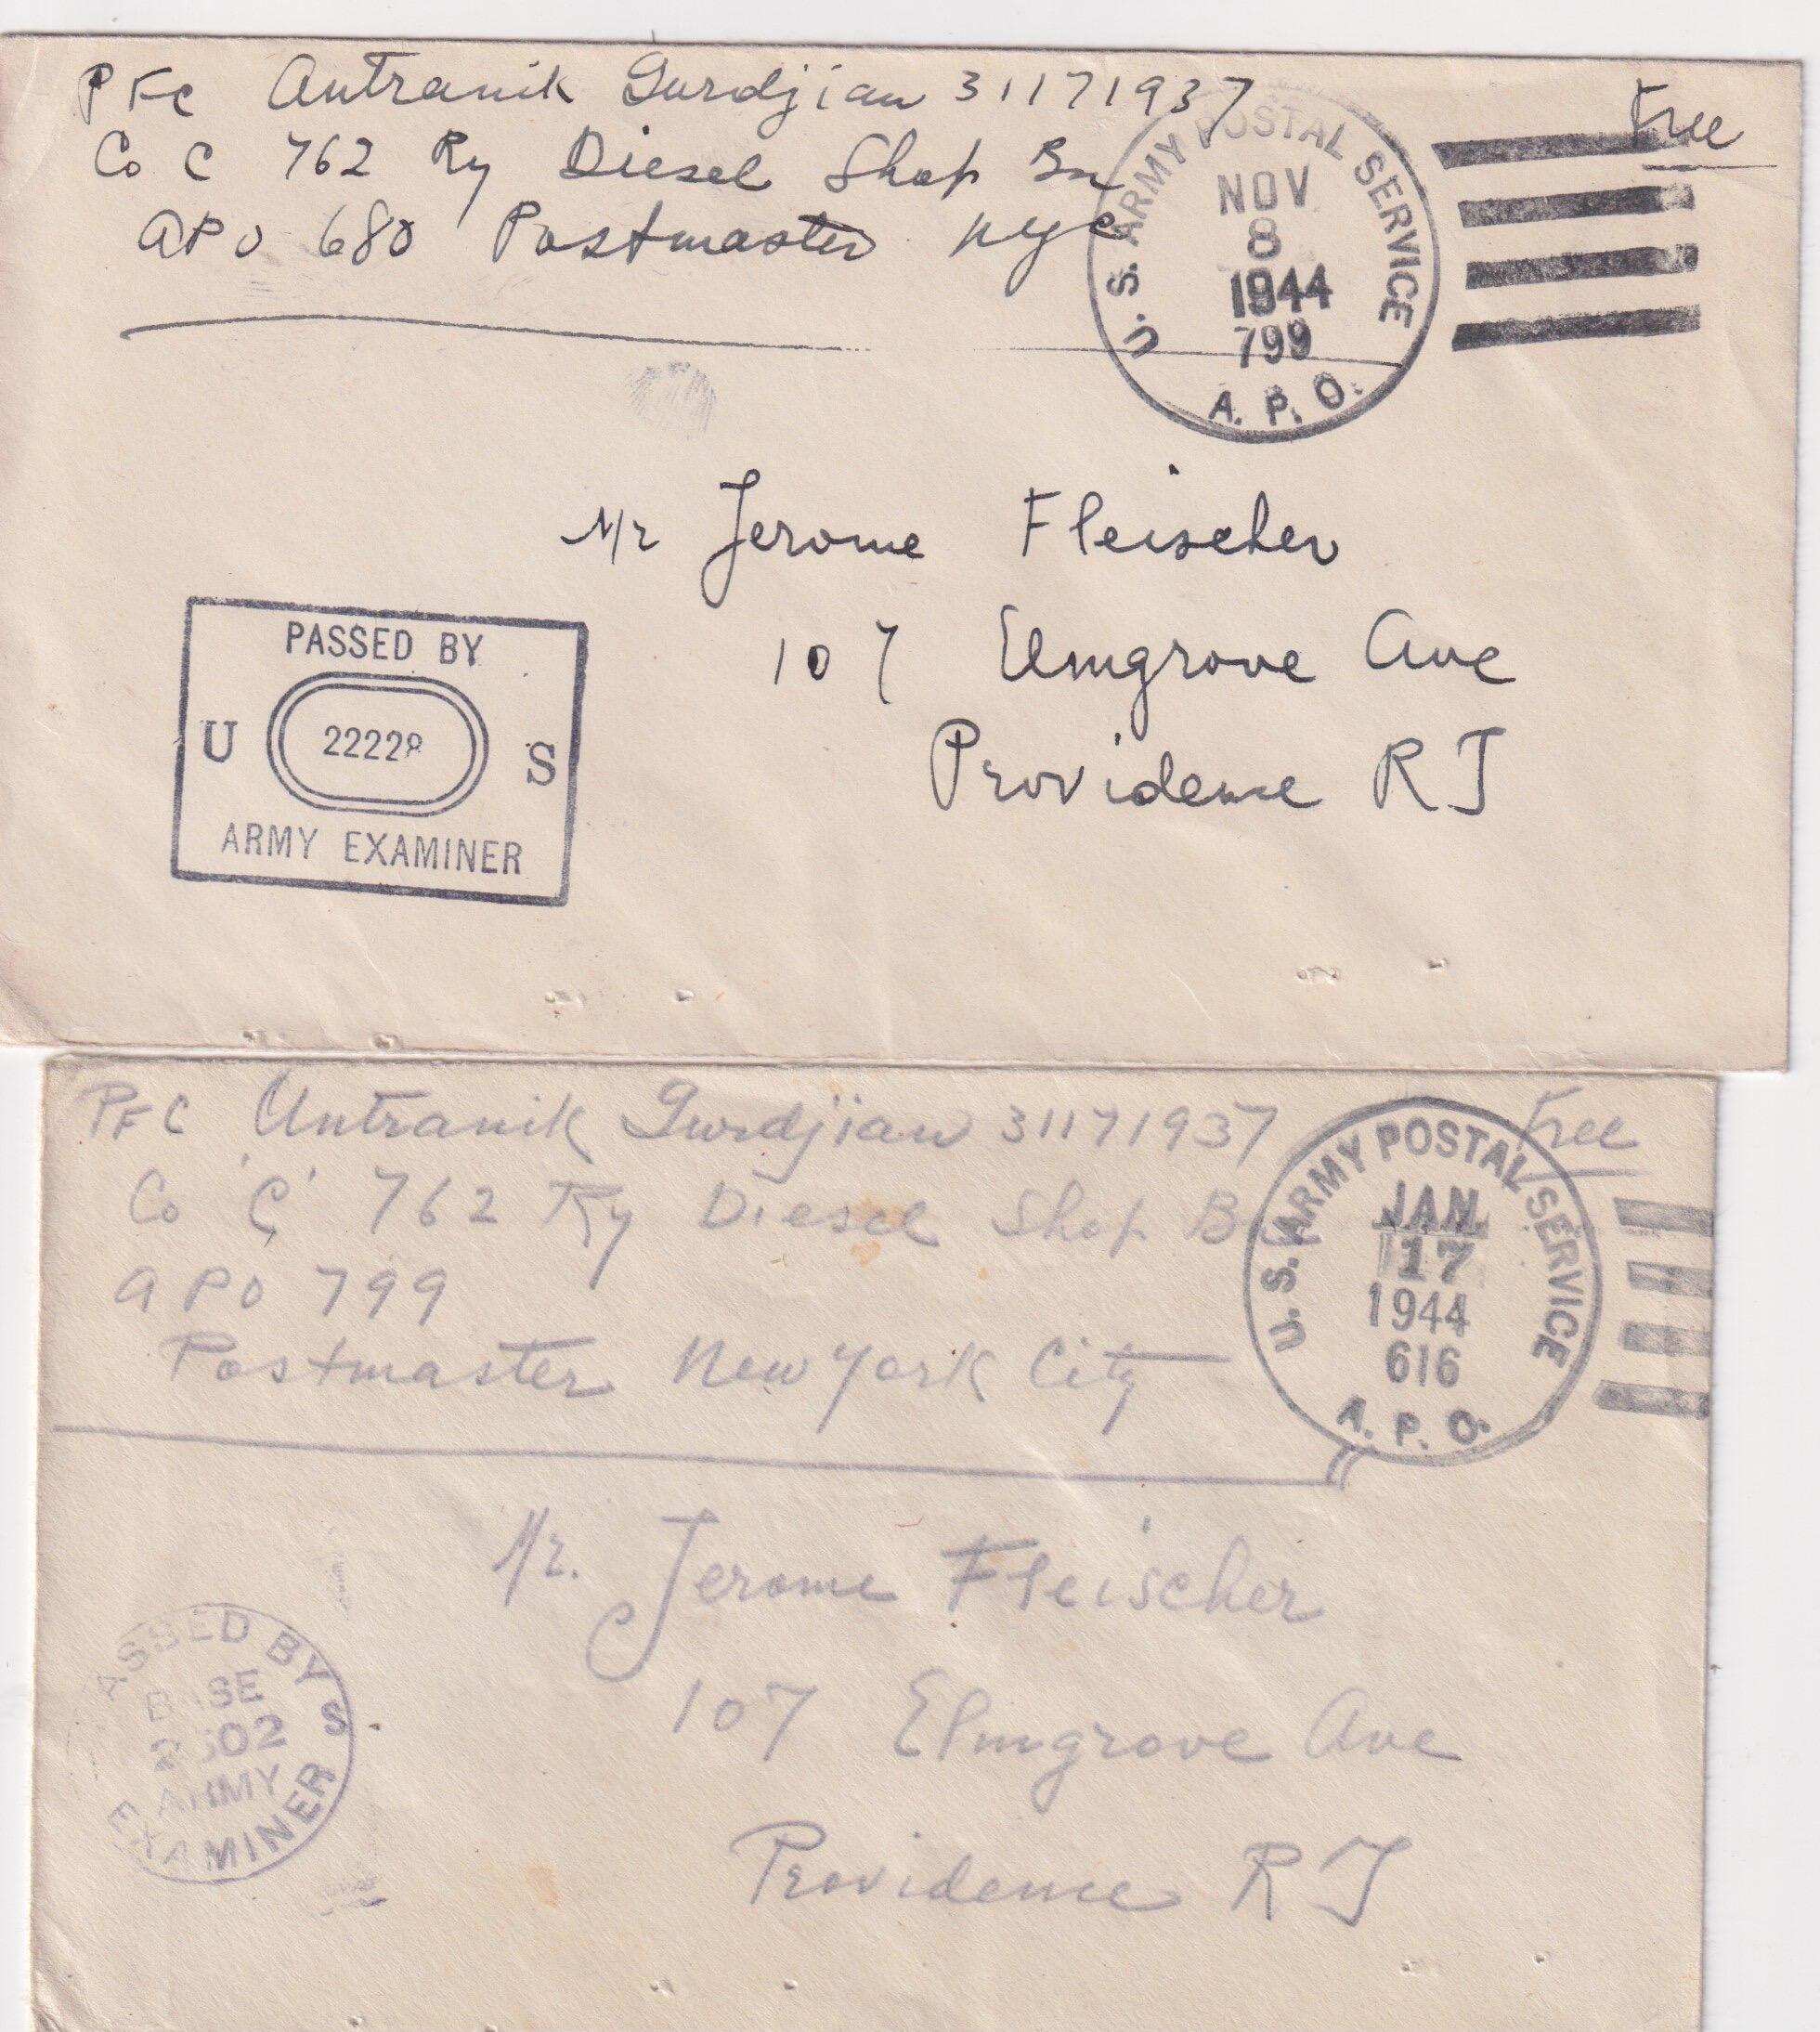 PFC Antranik Gurdjian 31171937
Co C 762 Ry Diesel Shop Bn
APO 680 Postmaster NYC
Free
U.S. ARMY POSTAL SERVICE
NOV
8
1944
799
A. P. O.
Mr Jerome Fleischer
107 Elmgrove Ave
Providence R I
PASSED BY
U 22228 S
ARMY EXAMINER
PFC Antranik Gurdjian 31171937
Co 'C' 762 Ry Diesel Shop Bn
APO 799
Postmaster New York City
Free
U.S. ARMY POSTAL SERVICE
JAN
17
1944
616
A. P. O.
Mr. Jerome Fleischer
107 Elmgrove Ave
Providence R I
PASSED BY
BASE
S
ARMY
EXAMINER